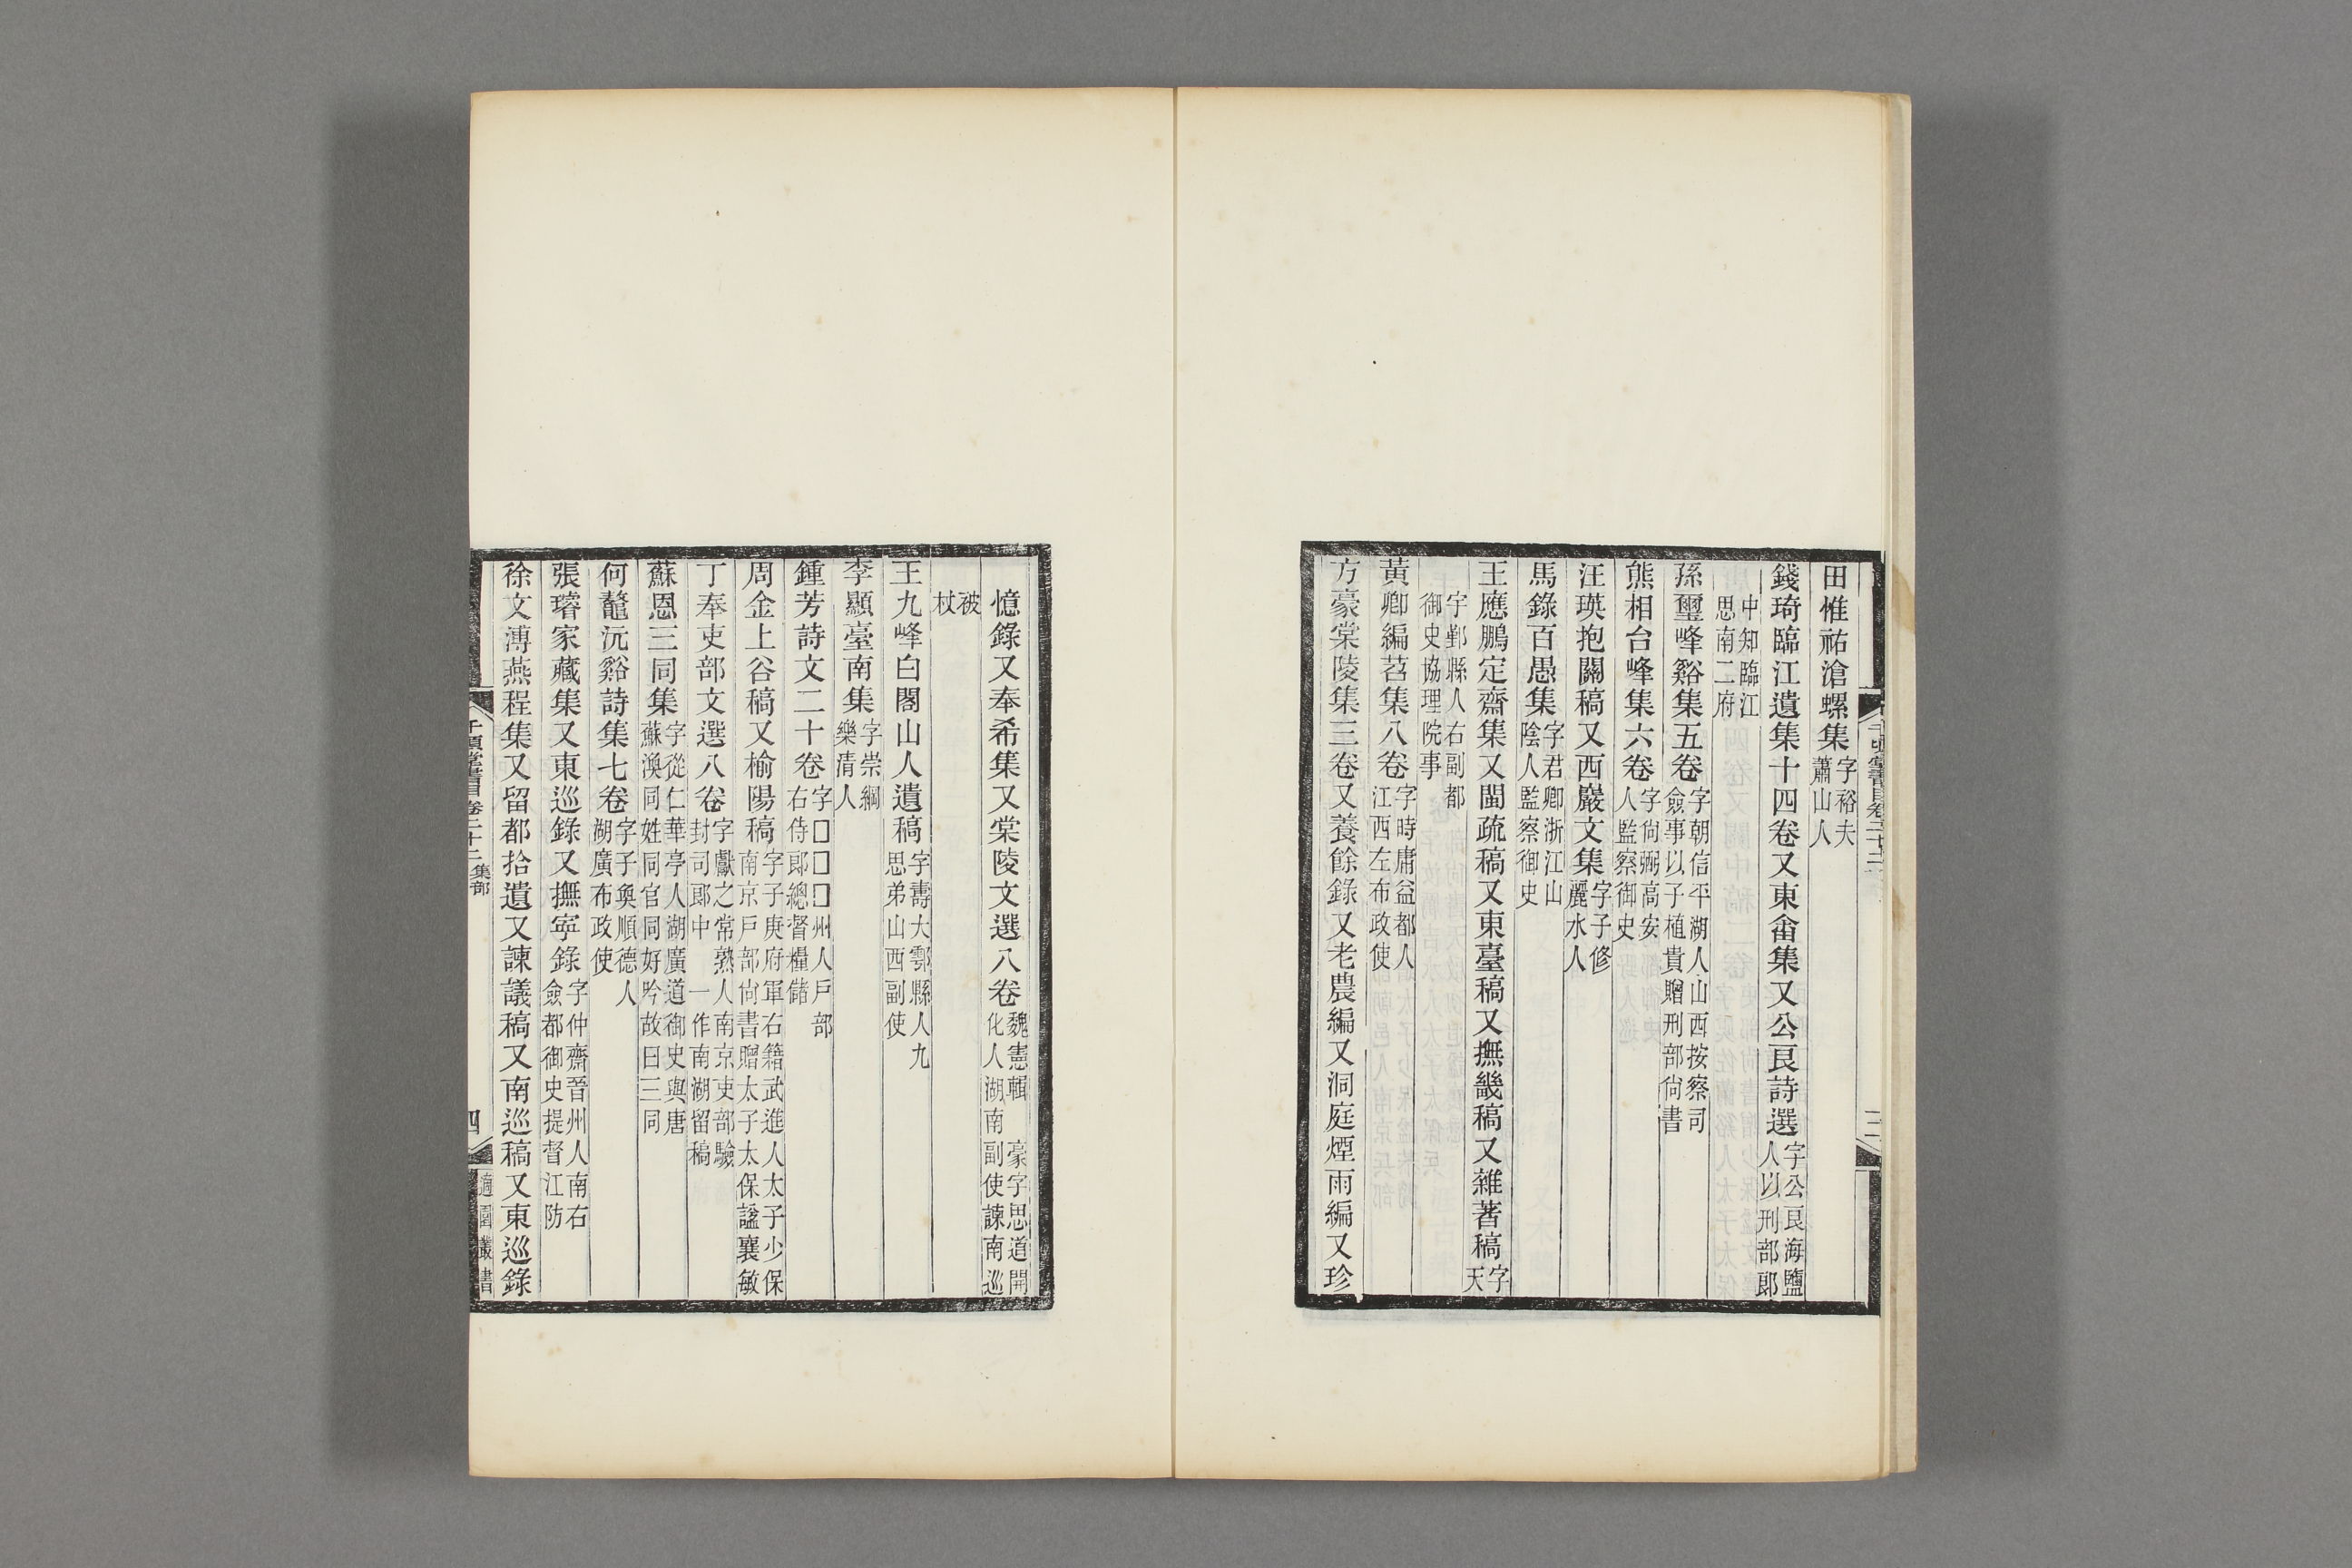 田惟祐滄螺集字裕夫蕭山人
錢琦臨江遺集十四卷又東畬集又公良詩選字公良海鹽人以刑部郎
中知臨江思南二府
孫璽峰谿集五卷字朝信平湖人山西按察司僉事以子植貴贈刑部尙書
熊相台峰集六卷字尙弼高安人監察御史
汪瑛抱關稿又西巖文集字子修麗水人
馬錄百愚集字君卿浙江山陰人監察御史
王應鵬定齋集又閩疏稿又東臺稿又撫畿稿又雜著稿字天
宇鄞縣人右副都御史協理院事
黃卿編苕集八卷字時庸益都人江西左布政使
方豪棠陵集三卷又養餘錄又老農編又洞庭煙雨編又珍
憶錄又奉希集又棠陵文選八卷魏憲輯 豪字思道開化人湖南副使諫南巡
被杖
王九峰白閣山人遺稿字壽大鄠縣人九思弟山西副使
李顯臺南集字崇綱樂清人
鍾芳詩文二十卷字□□□州人戶部右侍郎總督糧儲
周金上谷稿又榆陽稿字子庚府軍右籍武進人太子少保南京戶部尙書贈太子太保諡襄敏
丁奉吏部文選八卷字獻之常熟人南京吏部驗封司郎中 一作南湖留稿
蘇恩三同集字從仁華亭人湖廣道御史與唐蘇渙同姓同官同好吟故曰三同
何鼇沅谿詩集七卷字子奐順德人湖廣布政使
張璿家藏集又東巡錄又撫寧錄字仲齋晉州人南右僉都御史提督江防
徐文溥燕程集又留都拾遺又諫議稿又南巡稿又東巡錄
千頃堂書目卷二十二 集部
四
適園叢書